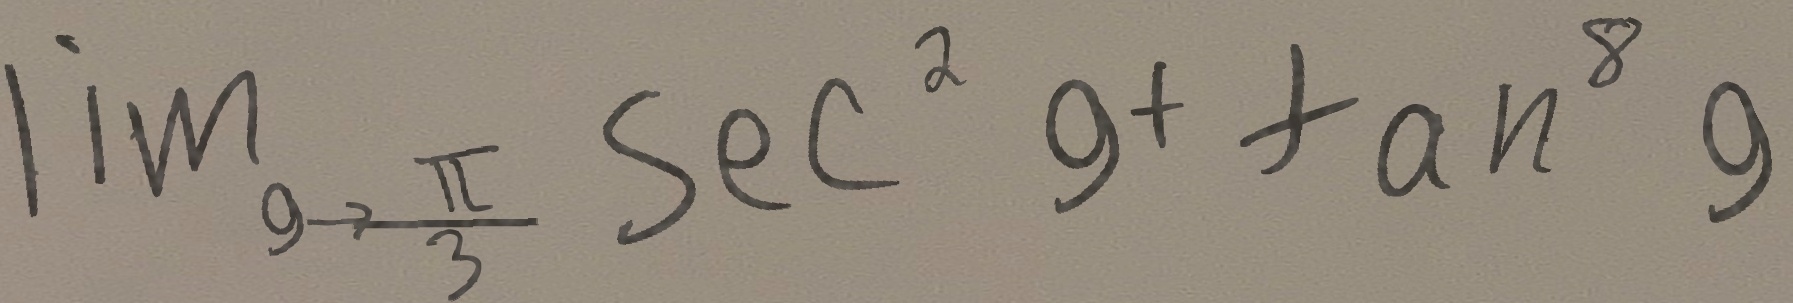 lim_{g→\frac{π}{3}} sec^2 g + tan^8 g